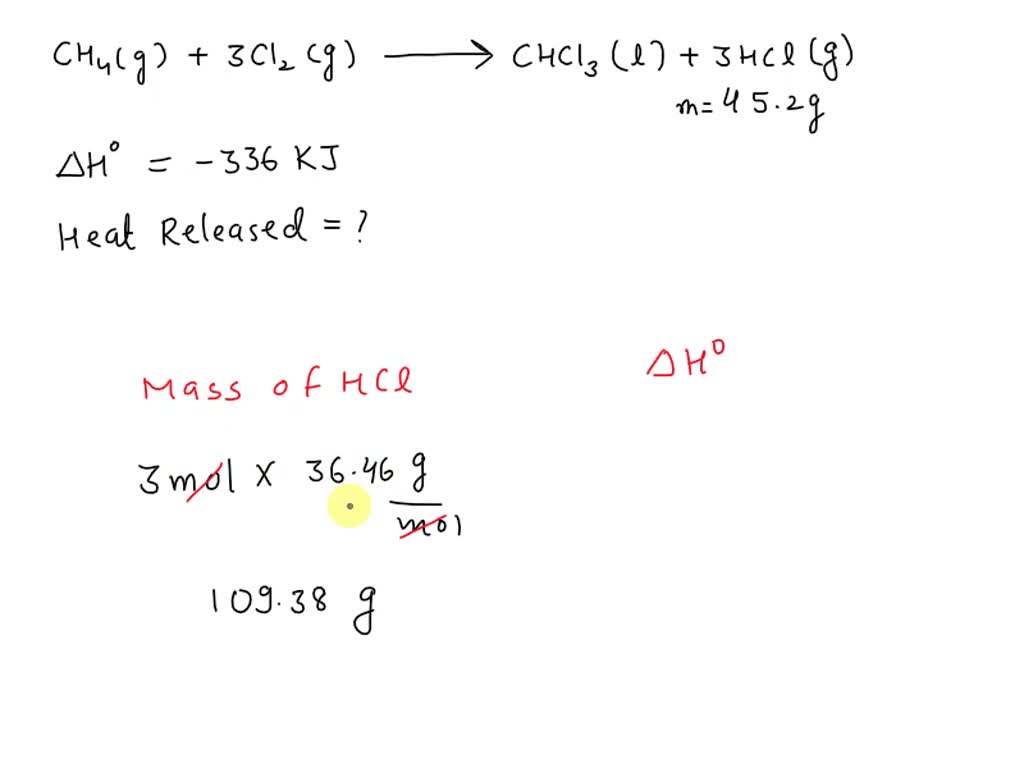 CH₄(g) + 3Cl₂(g) ⟶ CHCl₃(l) + 3HCl(g)
m = 45.2g
ΔH° = -336 KJ
Heat Released = ?
ΔH°
Mass of HCl
3mol × 36.46 g/mol
109.38 g